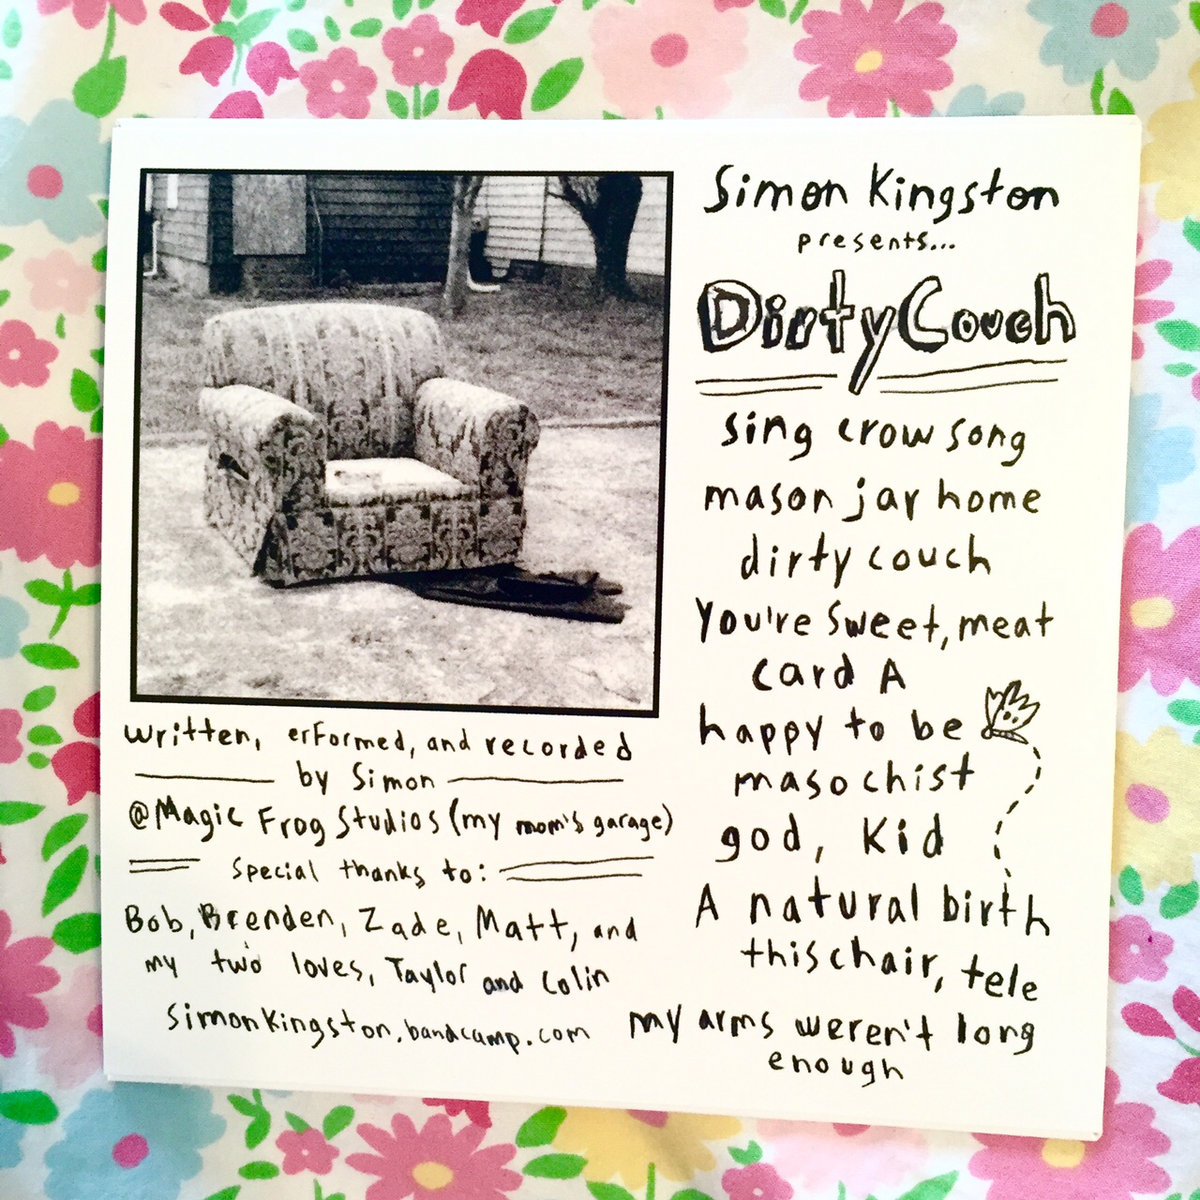 Simon Kingston
presents...
Dirty Couch
sing crow song
mason jar home
dirty couch
You're Sweet, meat
card A
happy to be
masochist
god, Kid
A natural birth
this chair, tele
my arms weren't long
enough
written, erformed, and recorded
by Simon
@Magic Frog Studios (my mom's garage)
Special thanks to:
Bob, Brenden, Zade, Matt, and
my two loves, Taylor and Colin
simonkingston.bandcamp.com